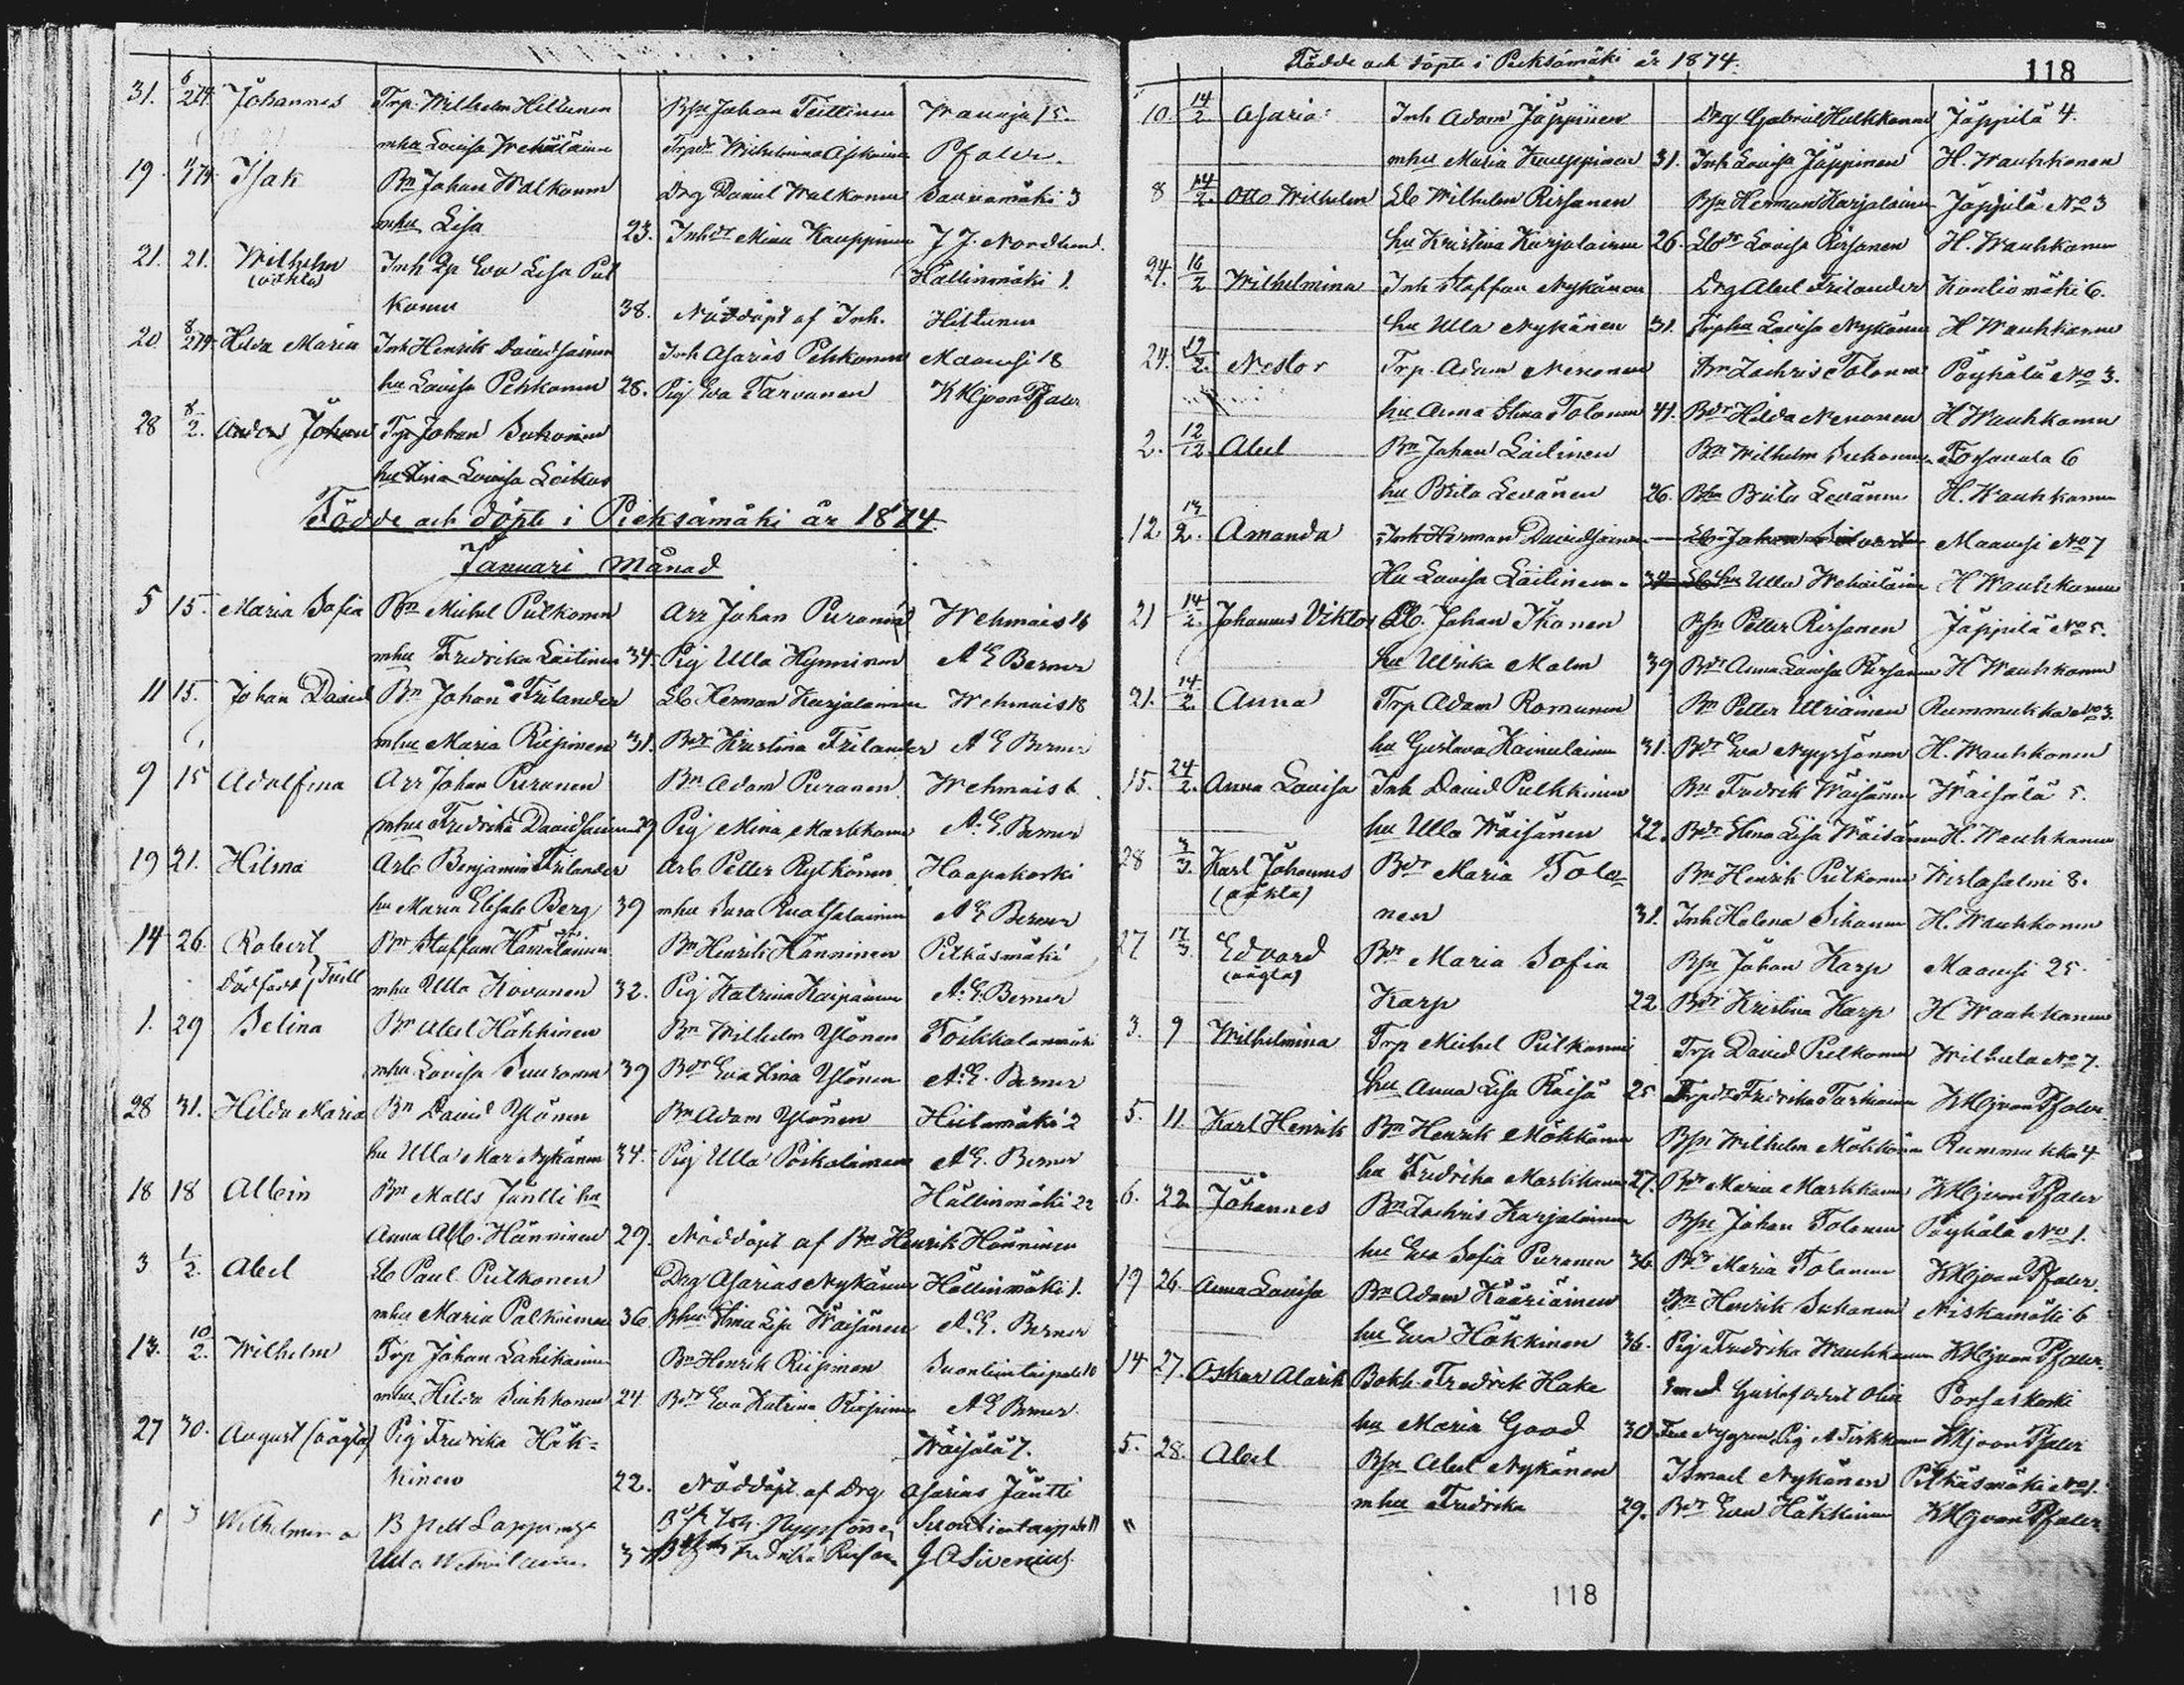 31. 6/2 74. Johannes Trp. Wilhelm Hiltunen Bsn Johan Teittinen Maavesi 15.
mhu Lovisa Wehviläinen Trpdr Wilhelmina Asikainen Pfaler.
19 1/74. Isak Bn Johan Walkonen Drg Daniel Walkonen Savumäki 3
mhu Lisa 23. Inhdr Mina Kauppinen J J. Nordlund.
21. 21. Wilhelm Inh Eva Lisa Pul Hällinmäki 1.
(oäkta) konen 38. Nöddöpt af Inh. Hiltunen
20 8/2 74 Hilda Maria Inh Henrik Davidsainen Inh Asarias Pehkonen Maavesi 18
hu Lovisa Pehkonen 28. Pig Eva Tarvanen K Hj von Pfaler
28 8/2. Anders Johan Trp Johan Suhonen
hu Stina Lovisa Leikas
Födde och döpte i Pieksämäki år 1874.
Januari Månad
5 15. Maria Sofia Bn Michel Pulkonen Arr Johan Puranen Wehmais 16
mhu Fredrika Laitinen 34. Pig Ulla Hynninen A E Berner
11 15. Johan David Bn Johan Frilander Lb Herman Karjalainen Wehmais 18
mhu Maria Riepinen 31. Bdr Kristina Frilander A E Berner
9 15 Adolfina Arr Johan Puranen Bn Adam Puranen Wehmais 6
mhu Fredrika Davidsainen 29 Pig Mina Markkanen A. E. Berner
19 21. Hilma Arb Benjamin Frilander Arb Petter Rytkönen Haapakoski
hu Maria Elisab Berg 39 mhu Sara Ruotsalainen A E Berner
14 26. Robert Bn Staffan Hämäläinen Bn Henrik Hänninen Pitkäsmäki
dödfödd Tvill mhu Ulla Kovanen 32. Pig Katrina Kaipainen A. E. Berner
1. 29 Selina Bn Abel Häkkinen Bn Wilhelm Ylönen Toikkalanmäki
mhu Lovisa Suuronen 39 Bdr Eva Stina Ylönen A. E. Berner
28 31. Hilda Maria Bn David Ylönen Bn Adam Ylönen Hietamäki 2
hu Ulla Mar Nykänen 34. Pig Ulla Poikolainen A. E. Berner
18 18 Albin Bn Matts Jäntti hu Hällinmäki 22
Anna Alb. Hänninen 29. Nöddöpt af Bn Henrik Hänninen
3 1/2. Abel Lb Paul Pulkonen Drg Asarias Nykänen Hällinmäki 1.
mhu Maria Palkinen 36. Bhu Stina Lisa Wäisänen A. E. Berner
13. 10/2. Wilhelm Trp Johan Lahikainen Bn Henrik Riipinen Suontientaipale 10
mhu Hilda Suhkonen 24 Bdr Eva Katrina Riipinen A E Berner
27 30. August (oägta) Pig Fredrika Häk= Wäisälä 7.
kinen 22. Nöddöpt af Drg Asarias Jäntti
1 3 Wilhelmina B Pett Lappi mh Suontientaipale 11
Ulla Wehviläinen 37 Fredrika J A Sivenius
Födde och döpte i Pieksämäki år 1874. 118
10. 14/2. Asaria Inh Adam Jäppinen Drg Gabriel Hulkkonen Jäppilä 4.
mhu Maria Kauppinen 31. Inh Lovisa Jäppinen H. Wauhkonen
8 14/2. Otto Wilhelm Lb Wilhelm Rissanen Bsn Herman Karjalainen Jäppilä No 3
hu Kristina Karjalainen 26. Lbdr Lovisa Rissanen H. Wauhkonen
24. 16/2 Wilhelmina Inh Staffan Nykänen Drg Abel Frilander Kontiomäki 6.
hu Ulla Nykänen 31. Trphu Lovisa Nykänen H Wauhkonen
24. 12/2. Nestor Trp. Adam Nenonen Bn Zachris Tolonen Pöyhölä No 3.
hu Anna Stina Tolonen 41. Bdr Hilda Nenonen H Wauhkonen
2. 12/2. Abel Bn Johan Laitinen Bn Wilhelm Suhonen 6
hu Brita Levänen 26. Bhu Brita Levänen H. Wauhkonen
12. 13/2. Amanda Inh Herman Davidsainen Lb Johan Maavesi No 7
Hu Lovisa Laitinen 34 Lbhu Ulla Wehviläinen H Wauhkonen
21 14/2. Johannes Viktor Lb. Johan Ikonen Bsn Petter Rissanen Jäppilä No 5.
hu Ulrika Malm 39 Bdr Anna Lovisa Rissanen H Wauhkonen
21. 14/2. Anna Trp Adam Romunen Bn Petter Utriainen Rummukka No 3.
hu Gustava Kainulainen 31. Bdr Eva Nyyssönen H. Wauhkonen
15. 24/2. Anna Lovisa Inh David Pulkkinen Bn Fredrik Wäisänen Wäisälä 5.
hu Ulla Wäisänen 22. Bdr Stina Lisa Wäisänen H. Wauhkonen
28 3/3. Karl Johannes Bdr Maria Tolo= Bn Henrik Pulkonen Wirtasalmi 8.
(oäkta) nen 31. Inh Helena Sihvonen H. Wauhkonen
27 17/3. Edvard Bdr Maria Sofia Bsn Johan Karp Maavesi 25.
(oägta) Karp 22. Bdr Kristina Karp H Wauhkonen
3. 9 Wilhelmina Trp Michel Pulkonen Trp David Pulkonen Wilhula No 7.
hu Anna Lisa Räisä 25 Trpdr Fredrika Tarkiainen K Hj von Pfaler.
5. 11. Karl Henrik Bn Henrik Mökkönen Bsn Wilhelm Mökkönen Rummukka 4
hu Fredrika Markkanen 27. Bdr Maria Markkanen K Hj von Pfaler
6. 22 Johannes Bn Zachris Karjalainen Bsn Johan Tolonen Pöyhölä No 1.
hu Eva Sofia Puranen 36. Bdr Maria Tolonen K Hj von Pfaler.
19 26. Anna Lovisa Bn Adam Kääriäinen Bn Henrik Suhonen Niskamäki 6
hu Eva Häkkinen 36. Pig Fredrika Wauhkonen K Hj von Pfaler.
14 27. Oskar Alarik Bokh. Fredrik Hake Smed Gustaf Porsaskoski
hu Maria Good 30 Fru Nygren, Pig A Tirkkonen K Hj von Pfaler
5. 28. Abel Bsn Abel Nykänen Ismael Nykänen Pitkäsmäki No 1.
mhu Fredrika 29. Bdr Eva Häkkinen K Hj von Pfaler.
118